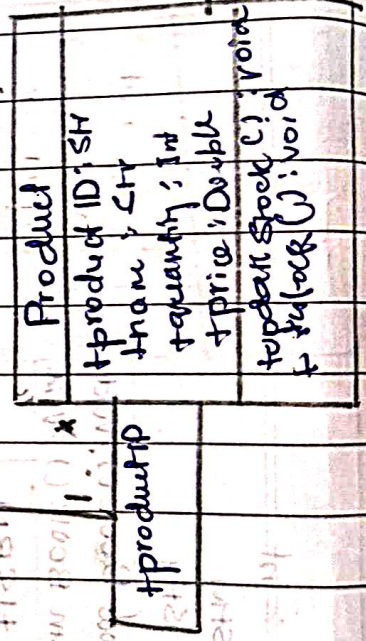 Product
+product ID : Str
+name : Str
+quantity : Int
+price : Double
+updateStock () : void
() : void
*
1
+productID